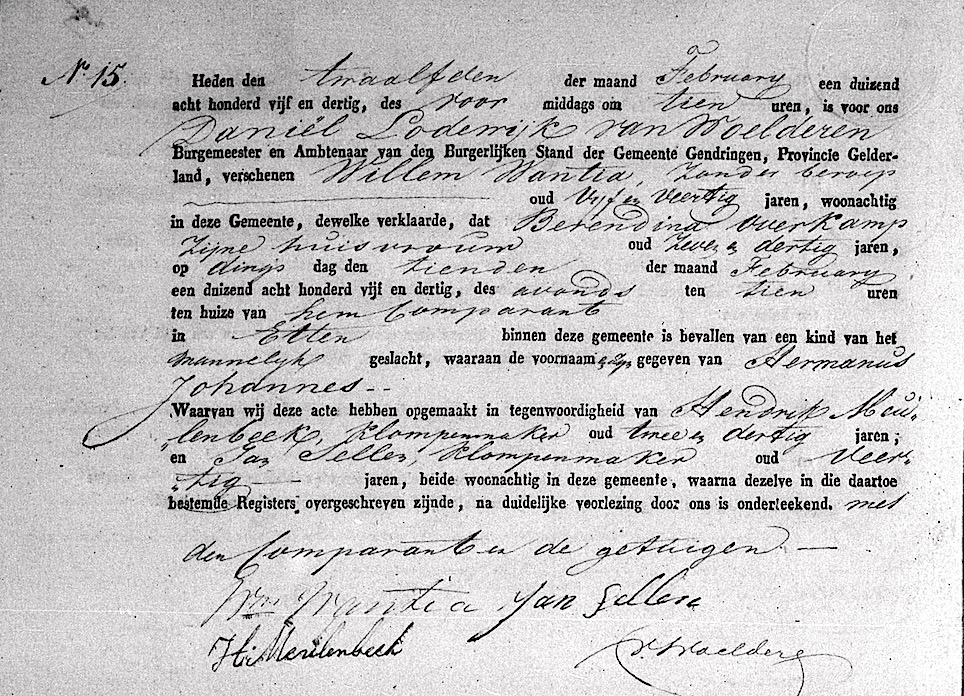 N. 15. Heden den twaalfden der maand February een duizend
acht honderd vijf en dertig, des voor middags om tien uren, is voor ons
Daniël Lodewijk van Woelderen
Burgemeester en Ambtenaar van den Burgerlijken Stand der Gemeente Gendringen, Provincie Gelder-
land, verschenen Willem Wantia, zonder beroep
oud vijf en veertig jaren, woonachtig
in deze Gemeente, dewelke verklaarde, dat Berendina Overkamp
zijne huisvrouw oud zeven en dertig jaren,
op dings dag den tienden der maand February
een duizend acht honderd vijf en dertig, des avonds ten tien uren
ten huize van hem Comparant
in Etten binnen deze gemeente is bevallen van een kind van het
mannelijk geslacht, waaraan de voornaam en zijn gegeven van Hermanus
Johannes --
Waarvan wij deze acte hebben opgemaakt in tegenwoordigheid van Hendrik Meu„
„lenbeek, klompenmaker oud twee en dertig jaren;
en Jan Sellen, klompenmaker oud veer„
„tig jaren, beide woonachtig in deze gemeente, waarna dezelve in die daartoe
bestemde Registers overgeschreven zijnde, na duidelijke voorlezing door ons is onderteekend. met
den Comparant en de getuigen —
Wm Wantia Jan Sellen
H: Meulenbeek V. Woelderen